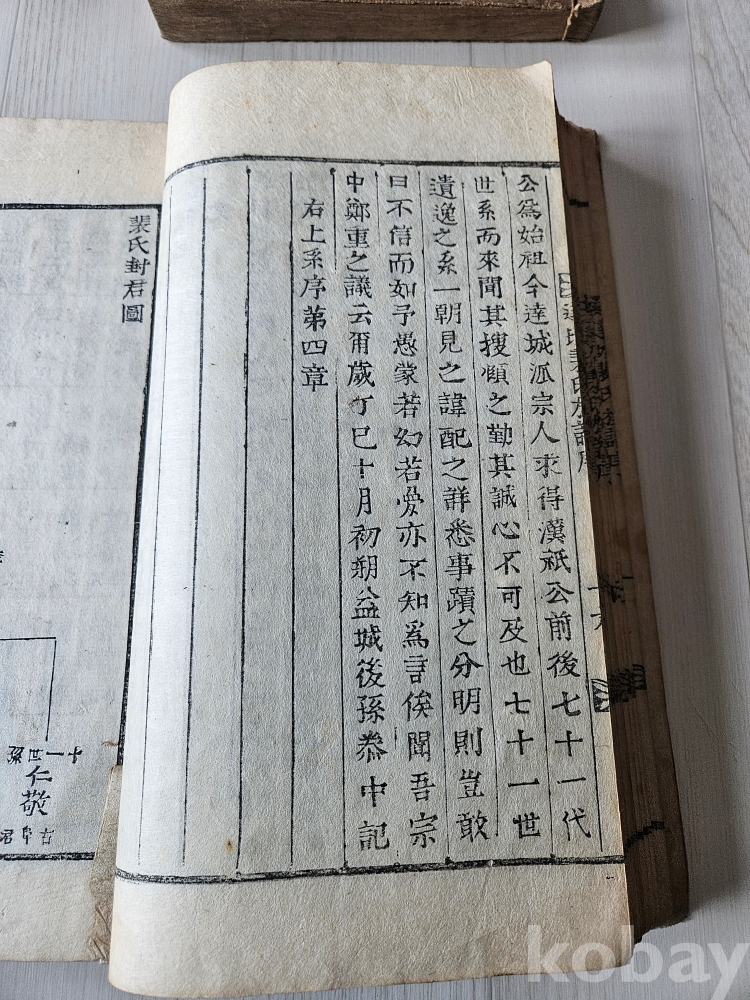 公爲始祖今達城派宗人求得漢祇公前後七十一代
世系而來聞其搜傾之勤其誠心不可及也七十一世
遺逸之系一朝見之諱配之詳悉事蹟之分明則豈敢
曰不信而如予愚蒙若幻若愛亦不知爲言俟聞吾宗
中鄭重之議云爾歲丁巳十月初朔益城後孫桊中記
右上系序第四章
裴氏封君圖
十一世孫
仁敬
kobay